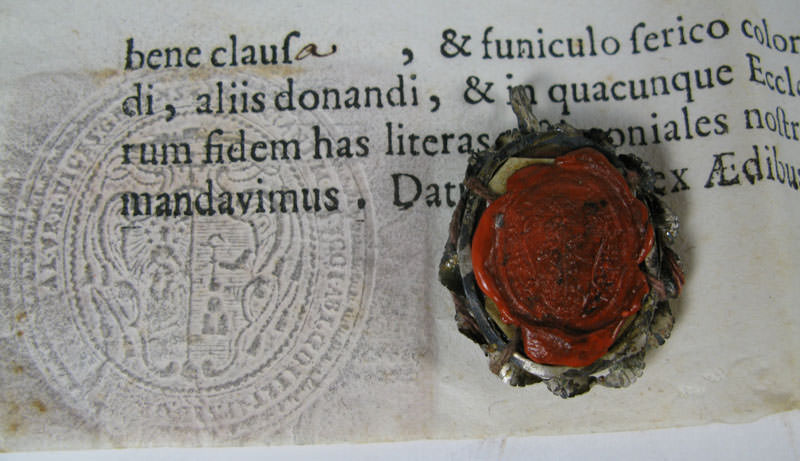 bene clauſa , & funiculo ſerico color
di, aliis donandi, & in quacunque Eccle
rum fidem has literas oniales noſtr
mandavimus. Dat ex Ædibus